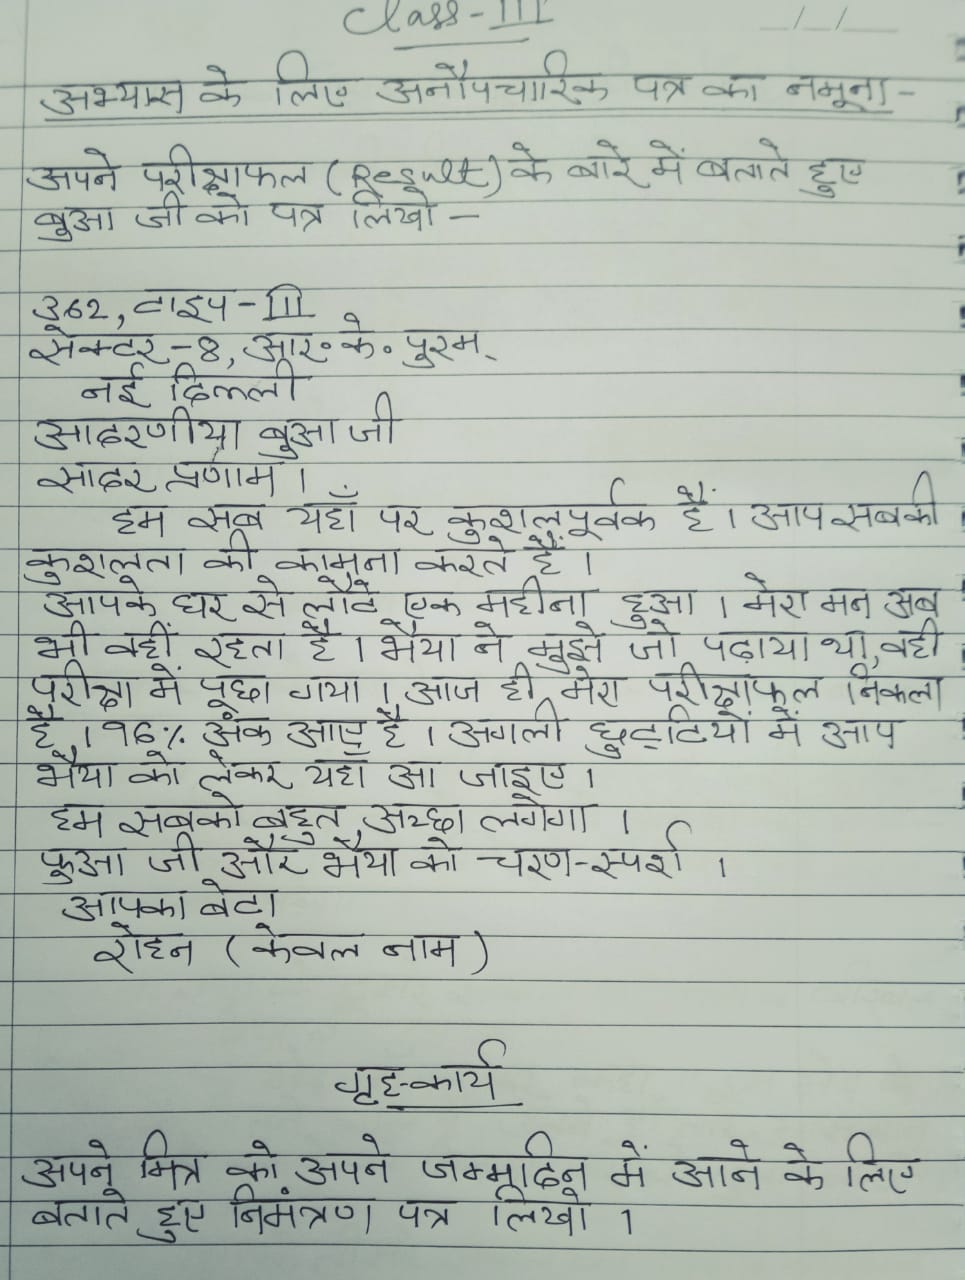 Class-III
अभ्यास के लिए अनौपचारिक पत्र का नमूना-
अपने परीक्षाफल (Result) के बारे में बताते हुए
बुआ जी को पत्र लिखो -
362, टाइप-III
सेक्टर-8, आर॰ के॰ पुरम्
नई दिल्ली
आदरणीया बुआ जी
सादर प्रणाम ।
हम सब यहाँ पर कुशलपूर्वक हैं । आप सबकी
कुशलता की कामना करते हैं ।
आपके घर से लौटे एक महीना हुआ । मेरा मन अब
भी वहीं रहता है । भैया ने मुझे जो पढ़ाया था, वही
परीक्षा में पूछा गया । आज ही मेरा परीक्षाफल निकला
है । 96% अंक आए है । अगली छुट्टियों में आप
भैया को लेकर यहाँ आ जाइए ।
हम सबको बहुत अच्छा लगेगा ।
फुआ जी और भैया को चरण-स्पर्श ।
आपका बेटा
रोहन (केवल नाम)
गृह-कार्य
अपने मित्र को अपने जन्मदिन में आने के लिए
बताते हुए निमंत्रण पत्र लिखो ।